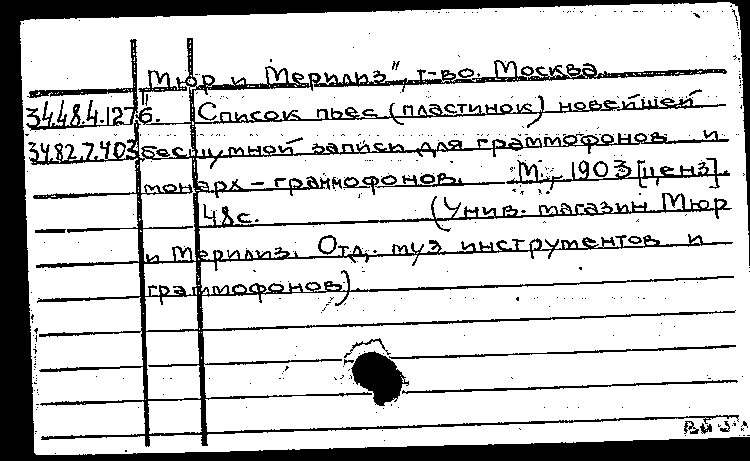 "Мюр и Мерилиз", т-во. Москва.
34.484.1276. Список пьес (пластинок) новейшей
34.82.7.403 бесшумной записи для граммофонов и
монарх-граммофонов. М., 1903 [ценз].
48с. (Унив. магазин Мюр
и Мерилиз. Отд. муз. инструментов и
граммофонов).